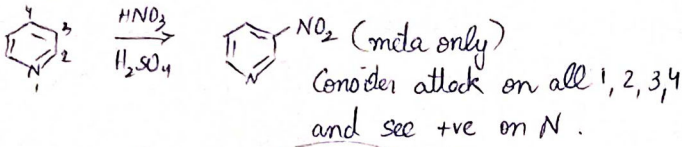 4
3
2
N
1
HNO3
H2SO4
N
NO2 (meta only)
Consider attack on all 1, 2, 3, 4
and see +ve on N.